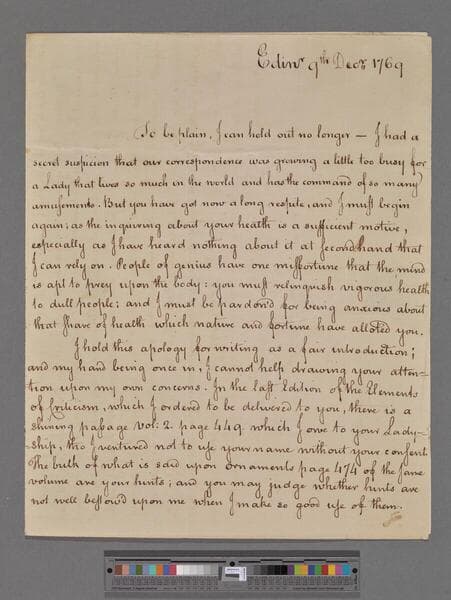 Edinr 9th Decr 1769
To be plain, I can hold out no longer — I had a
secret suspicion that our correspondence was growing a little too busy for
a Lady that lives so much in the world and has the command of so many
amusements. But you have got now a long respite, and I must begin
again; as the inquiring about your health is a sufficient motive,
especially as I have heard nothing about it at second hand that
I can rely on. People of genius have one misfortune that the mind
is apt to prey upon the body: you must relinquish vigorous health
to dull people; and I must be pardon'd for being anxious about
that share of health which nature and fortune have alloted you.
I hold this apology for writing as a fair introduction;
and my hand being once in, I cannot help drawing your atten-
tion upon my own concerns. In the last Edition of the Elements
of Criticism, which I ordered to be delivered to you, there is a
shining passage vol: 2. page 449. which I owe to your Lady-
ship, tho' I ventured not to use your name without your consent.
The bulk of what is said upon ornaments page 474 of the same
volume are your hints; and you may judge whether hints are
not well bestow'd upon me when I make so good use of them.